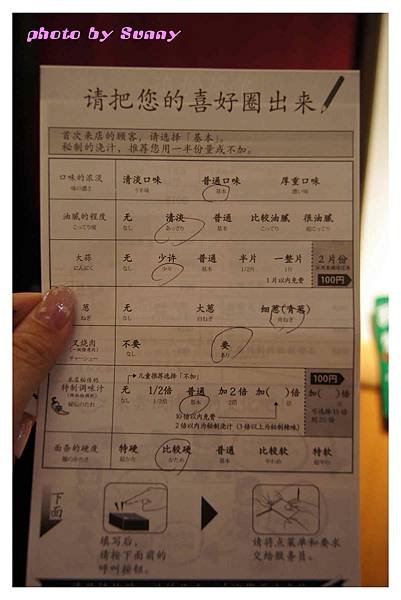 photo by Sunny
请把您的喜好圈出来
首次来店的顾客，请选择「基本」。
秘制的浇汁，推荐您用一半份量或不加。
口味的浓淡 清淡口味 普通口味 厚重口味
味の濃さ うす味 基本 濃い味
油腻的程度 无 清淡 普通 比较油腻 很油腻
こってり度 なし あっさり 基本 こってり 超こってり
大蒜 无 少许 普通 半片 一整片 2片份
にんにく なし 少々 基本 1/2片 1片
1片以内免费 100円
葱 无 大葱 细葱(青葱)
ねぎ なし 白ねぎ 青ねぎ
叉烧肉 不要 要
チャーシュー なし あり
儿童推荐选择「不加」 100円
本店秘传的
特制调味汁 无 1/2倍 普通 加2倍 加( )倍 加( )倍
秘伝のたれ なし 1/2 基本 2倍 倍
10倍以内免费
2倍以内为秘制浇汁（3倍以上为秘制辣味）
面条的硬度 特硬 比较硬 普通 比较软 特软
麺のかたさ 超かた かため 基本 やわめ 超やわ
下面
填写后，
请按下面前的
呼叫按钮。
请将点菜单和要求
交给服务员。